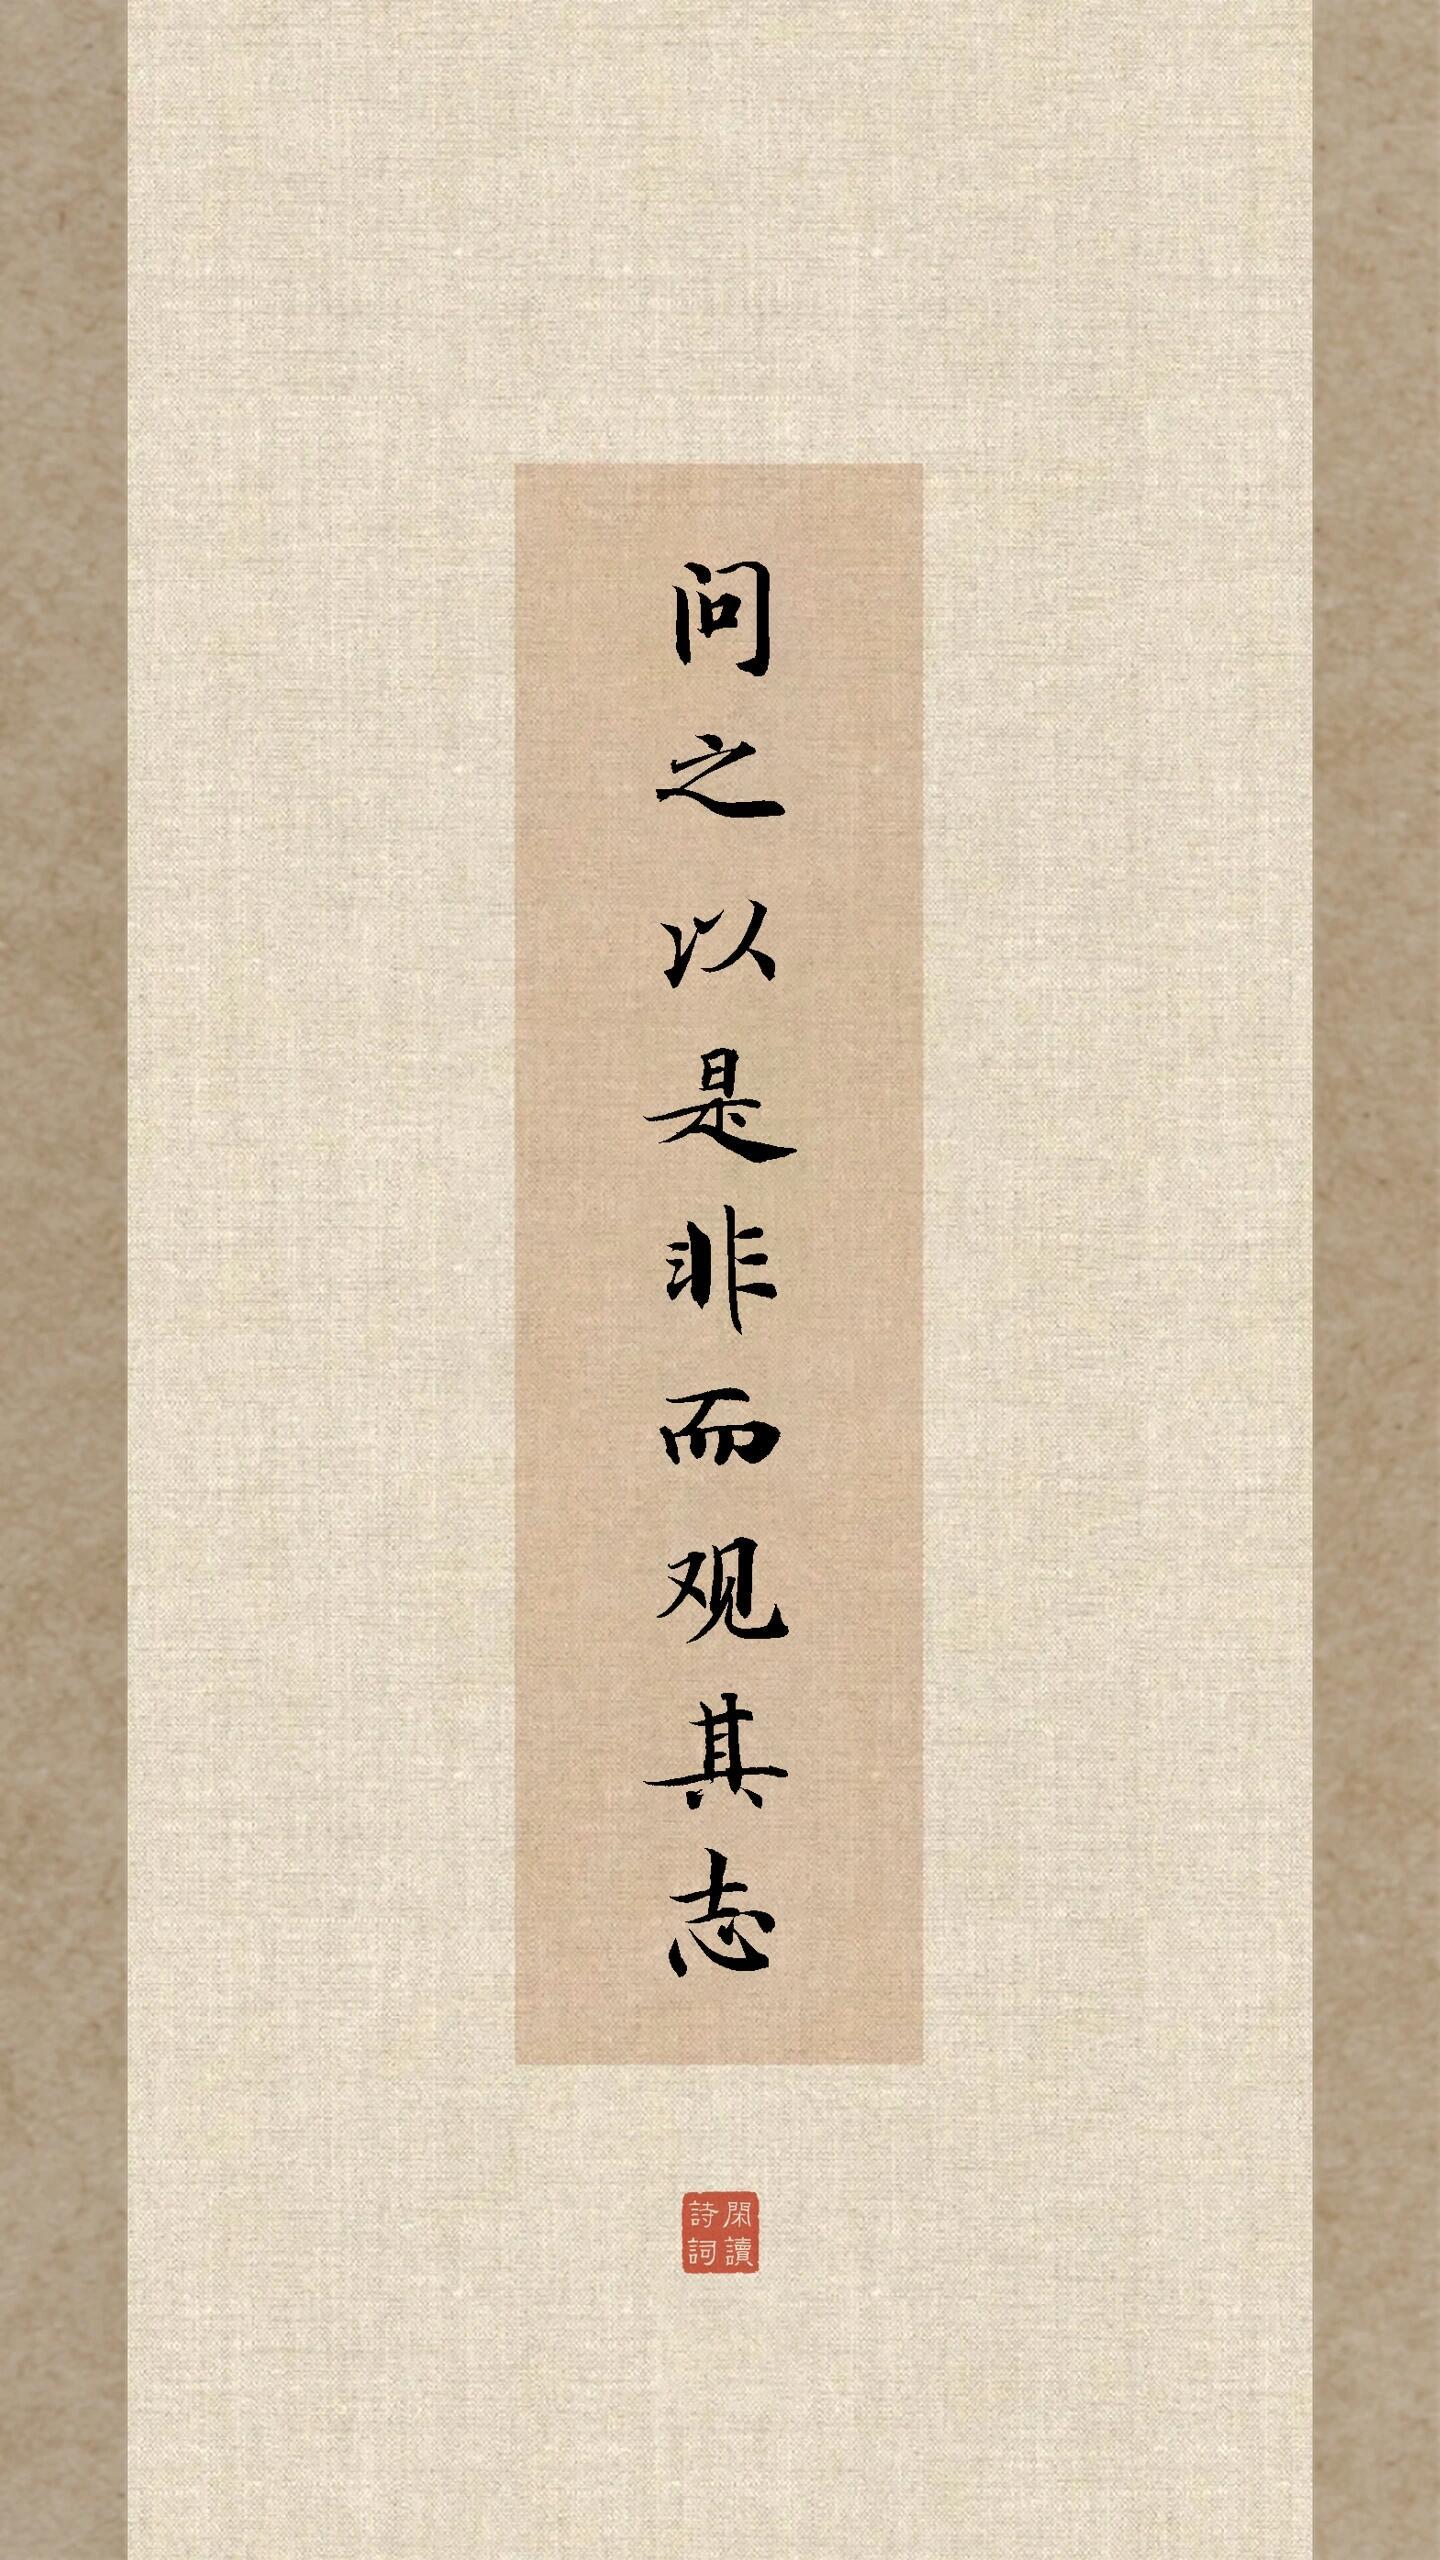 问之以是非而观其志
閑讀
詩詞